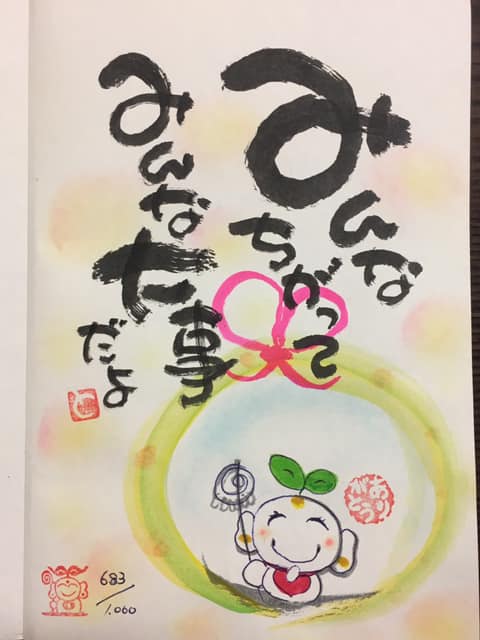 みんな
ちがって
みんな
大事
だよ
ありがとう
683/1.000